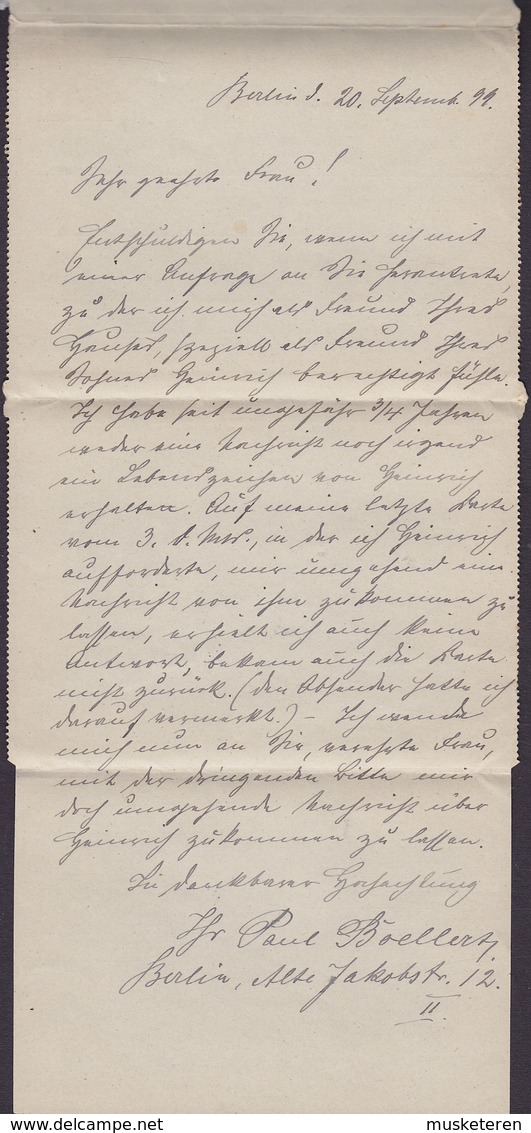 Berlin d. 20. Septemb. 99.
Sehr geehrte Frau!
Entschuldigen Sie, wenn ich mit
einer Anfrage an Sie herantrete,
zu der ich mich als Freund Ihres
Hauses, speziell als Freund Ihres
Sohnes Heinrich berechtigt fühle.
Ich habe seit ungefähr 3/4 Jahren
weder eine Nachricht noch irgend
ein Lebenszeichen von Heinrich
erhalten. Auf meine letzte Karte
vom 3. d. Mts., in der ich Heinrich
aufforderte, mir umgehend eine
Nachricht von ihm zukommen zu
lassen, erhielt ich auch keine
Antwort, bekam auch die Karte
nicht zurück. (Den Absender hatte ich
darauf vermerkt.) – Ich wende
mich nun an Sie, verehrte Frau,
mit der dringenden Bitte mir
doch umgehende Nachricht über
Heinrich zukommen zu lassen.
In dankbarer Hochachtung
Ihr Paul Boellert,
Berlin, Alte Jakobstr. 12.
II.
musketeren